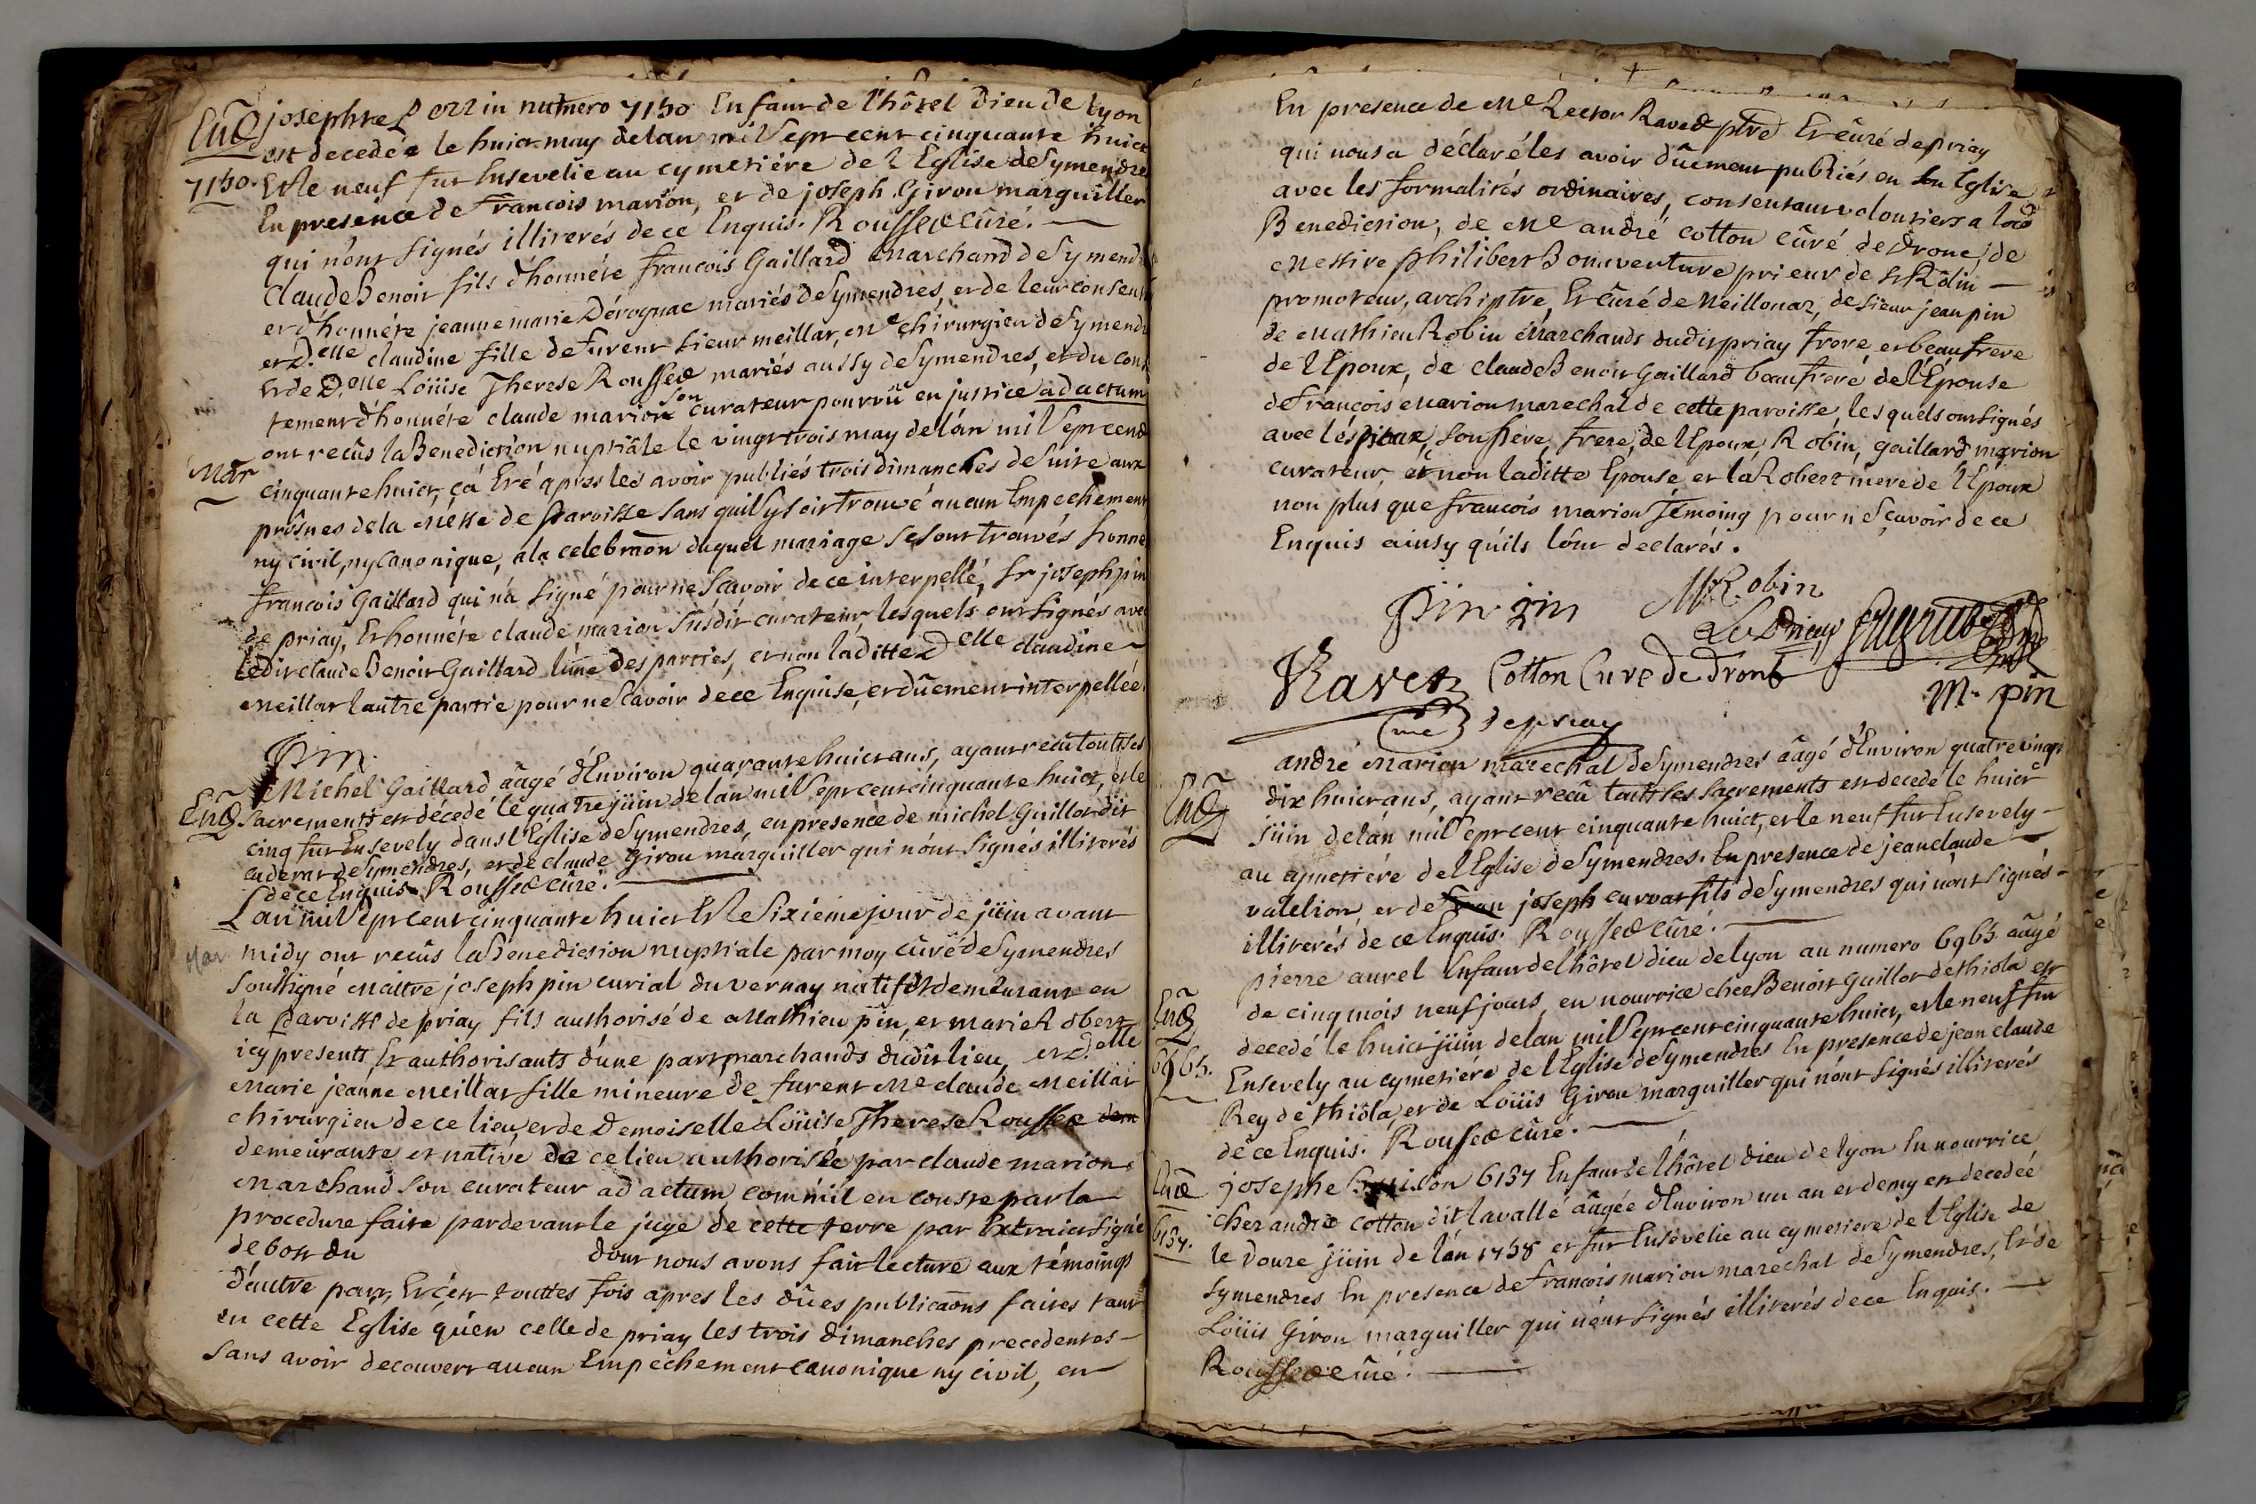 josephte Perrin numero 7150 Enfant de l'hôtel Dieu de Lyon
Ens
est decedée le huict may de lan mil Sept cent cinquante huict
7150.
Et le neuf fut Ensevelie au cymetiére de l'Eglise de Symendre
En presence de francois marion, et de joseph Girou marguiller
qui n'ont signés illiterés de ce Enquis. Rousset cûré.
Claude Benoit fils d'honnéte francois Gaillard Marchand de Symend
et d'honnéte jeanne marie Dérognac mariés de Symendres, et de leur consent
et D.elle claudine fille de furent sieur meillat, Me chirurgien de Symend
Et de D.elle Loüise Therese Rousset mariés aussy de Symendres, et du cons
tement d'honnéte claude marion son curateur pourvû en justice ad actum
ont reçûs la Benediction nuptiâle le vingt trois may de lán mil Sept cent
Mar
cinquante huict, çá Eté apres les avoir publiés trois dimanches de suite aux
prosnes de la Mésse de Paroisse sans quil y soit trouvé aucun Empechement
ny civil, ny canonique, a la celebraõn duquel mariage se sont trouvés honne
francois Gaillard qui n'á signé pour ne sçavoir de ce interpellé, sr joseph pin
de priay, Et honnéte claude marion susdit curateur, lesquels ont signés avec
ledit claude Benoit Gaillard l'une des parties, et non laditte D.elle claudine
Meillat lautre partie pour ne savoir de ce Enquise, et dûement interpellée.
Pin
Michel Gaillard âagé d'Environ quarante huict ans, ayant reçû touts ses
Ens
Sacrements est décedé le quatre jüin de lan mil Sept cent cinquante huict, et le
cinq fut Ensevely dans l'Eglise de Symendres, en presence de michel Guillot dit
cadet de Symendres, et de claude Girou marguiller qui n'ónt signés illiterés
de ce Enquis. Rousset cûré.
L'an mil Sept cent cinquante huict Et le Sixiéme jour de jüin avant
Mar
midy ont reçûs la Benediction nuptiale par moy cûré de Symendres
Soussigné Maitre joseph pin curial du vernay natif et demeurant en
la Paroisse de priay fils authorisé de Mathieu pin, et marie Robert
icy presents Et authorisants d'une part marchands dudit lieu, et D.elle
Marie jeanne Meillat fille mineure de furent Me claude Meillat
chirurgien de ce lieu et de Demoiselle Loüise Therese Rousset dem
demeurante et native de ce lieu authorisée par claude marion
Marchand son curateur ad actum, comm'il en conste par la
procedure faite pardevant le juge de cette terre par Extrait signé
debost du dont nous avons fait lecture aux témoings
d'autre part, Et c'est touttes fois apres les dûes publicaõns faites tant
en cette Eglise qu'en celle de priay les trois dimanches precedentes
Sans avoir decouvert aucun Empêchement canonique ny civil, en
En presence de Me Rector Ravet ptre Et cûré de priay
qui nous a déclaré les avoir dûement publiés en son Eglise
avec les formalités ordinaires, consentant volontiers a lad
Benediction, de Me andré cotton cûré de Drone, de
Messire philibert Bonaventure prieur de st Rolin
promoteur, archiptre, Et cûré de Meillonaz, de sieur jean pin
de Mathieu Robin Marchands dudit priay frere et beau frere
de l'Epoux, de claude Benoit Gaillard beau freré de l'Épouse
de francois Marion marechal de cette paroisse, les quels ont signés
avec l'époux, son pere, frere, de l'Epoux, Robin, gaillard marion
curateur, et non laditte Epouse et la Robert mere de l'Epoux
non plus que francois marion témoing pour ne sçavoir de ce
Enquis ainsy qu'ils lônt declarés.
Pin pin MRobin
Ravet Cotton Curé de Dront
curé de priay
M. pin
andré Marion marechal de Symendres âagé d'Environ quatre vingt
Ens
dix huict ans, ayant reçû touts ses sacrements est decedé le huict
jüin de lán mil Sept cent cinquante huict, et le neuf fut Ensevely
au cymetiére de l'Eglise de Symendres. En presence de jean claude
valelion, et de fran joseph curvat fils de Symendres qui n'ónt signés
illiterés de ce Enquis. Rousset cûré.
pierre aurel Enfant de l'hôtel dieu de Lyon au numero 6965 âagé
Ens
de cinq mois neuf jours, en nourrice chez Benoit Guillot de thiola est
6965.
decedé le huict jüin de lan mil Sept cent cinquante huict, et le neuf fut
Ensevely au cymetiére de l'Eglise de Symendres En presence de jean claude
Rey de thiola et de Loüis Girou marguiller qui n'ónt signés illiterés
de ce Enquis. Rousset cûré.
Ens
josephe 6157 Enfant de l'hôtel Dieu de Lyon En nourrice
6157.
chez andré cotton dit lavallé âagée d'Environ un an et demy est decedée
le Douze jüin de lán 1758 et fut Ensevelie au cymetiere de l'Eglise de
Symendres En presence de francois marion maréchal de Symendres, Et de
Loüis Girou marguiller qui n'ónt signés illiterés de ce Enquis.
Rousset cûré.